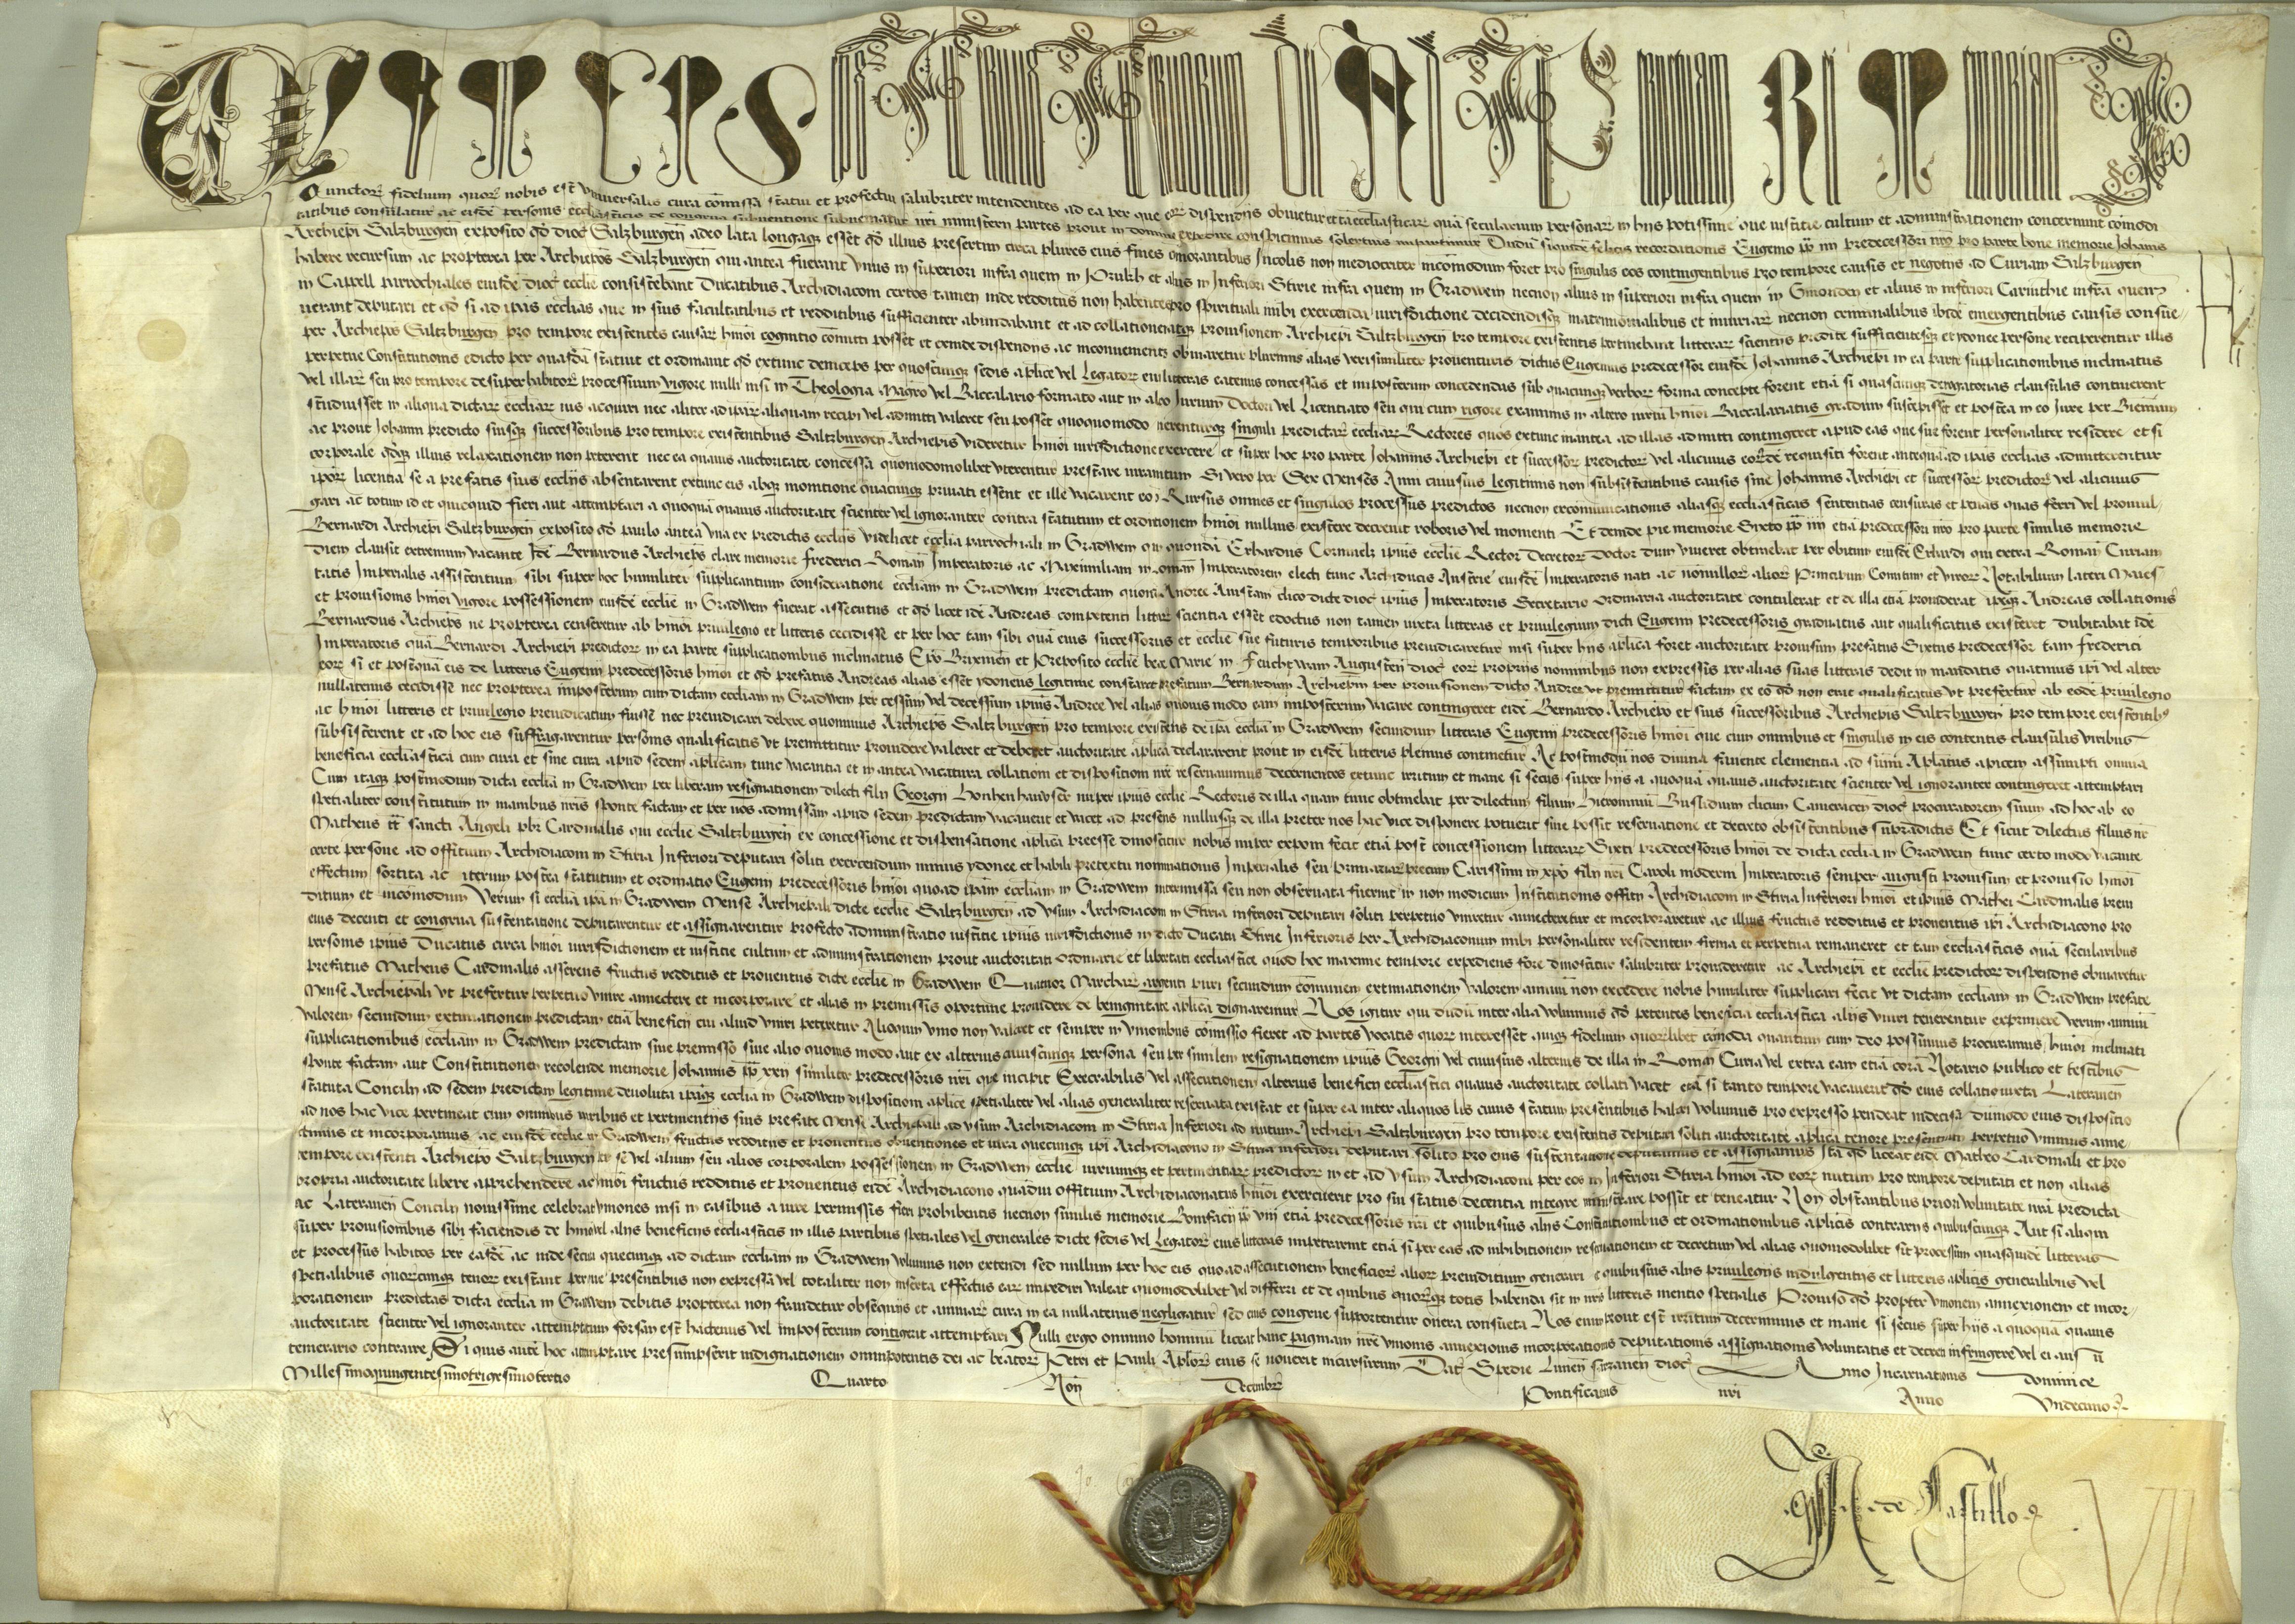 CLEMENS EPISCOPUS SERVUS SERVORUM DEI AD PERPETUAM REI MEMORIAM
Cunctorũ fidelium quorũ nobis est universalis cura cõmissa statui et profectui salubriter intendentes ad ea per que eorũ dispendijs obvietur et tã ecclesiasticarũ quã secularium personarũ in hijs potissime que iusticie cultum et administrationem concernunt cõmodi
tatibus consulatur ac eisdẽ personis ecclesiasticis de congrua subventione subveniatur nri ministerii partes prout in domino expedire conspicimus solertius impartimur Dudũ siquidẽ felicis recordationis Eugenio pp̃ iiij predecessori nro pro parte bone memorie Johannis
Archiepi Saltzburgeñ exposito qđ dioc̃ Saltzburgeñ adeo lata longaqȝ esset qđ illius presertim circa plures eius fines cõmorantibus Incolis non mediocriter incõmodum foret pro singulis eos contingentibus pro tempore causis et negotijs ad Curiam Saltzburgeñ
habere recursum ac propterea per Archiepõs Saltzburgeñ qui antea fuerant Unus in superiori infra quem in Prukh et alius in Inferiori Stirie infra quem in Gradwein necnon alius in superiori infra quem in Gmonden et alius in inferiori Carinthie infra quem
in Capell parrochiales eiusdẽ dioc̃ ecclie consistebant Ducatibus Archidiaconi certos tamen inde redditus non habentes pro spirituali inibi exercenda iurisdictione decidendisqȝ matrimonialibus et iniuriarũ necnon criminalibus ibidẽ emergentibus causis consue-
verant deputari et qđ si ad ipãs ecclias que in suis facultatibus et redditibus sufficienter abundabant et ad collationem atqȝ provisionem Archiepi Saltzburgeñ pro tempore existentis pertinebant litterarũ scientijs predite sufficientesqȝ et ydonee persone reciperentur illis
per Archiepõs Saltzburgeñ pro tempore existentes causarũ hmõi cognitio cõmitti posset et exinde dispendijs ac inconvenientijs obviaretur plurimis alias verisimiliter proventuris dictus Eugenius predecessor eiusdẽ Johannis Archiepi in ea parte supplicationibus inclinatus
perpetue Constitutionis edicto per quasdã statuit et ordinavit qđ extunc deinceps per quoscũqȝ sedis aplice vel Legatorũ eius litteras eatenus concessas et imposterum concedendas sub quacunqȝ verborũ forma concepte forent etiã si quascũqȝ derogatorias clausulas continerent
vel illarũ seu pro tempore desuper habitorũ processuum vigore nulli nisi in Theologia Magrõ vel Baccalario formato aut in altero Jurium Doctori vel Licentiato seu qui cum rigore examinis in altero iuriũ hmõi Baccalariatus gradum suscepisset et postea in eo Jure per Biennium
studuisset in aliqua dictarũ ecclẽiarũ ius acquiri nec aliter ad ipãrũ aliquam recipi vel admitti valeret seu posset quoquomodo tenerenturqȝ singuli predictarũ ecclẽiarũ Rectores quos extunc inantea ad illas admitti contingeret apud eas que sue forent personaliter residere et si
ac prout Johanni predicto suisqȝ successoribus pro tempore existentibus Saltzburgeñ Archiepis videretur hmõi iurisdictione exercere et super hoc pro parte Johannis Archiepi et successorũ predictorũ vel alicuius eorũdẽ requisiti forent anteqȝ ad ipãs ecclias admitterentur
corporale qđqȝ illius relaxationem non peterent nec ea quavis auctoritate concessa quomodolibet uterentur prestare iuramtum Si vero per Sex Menses Anni cuiuslibet legitimis non subsistentibus causis sine Johannis Archiepi et successorũ predictorũ vel alicuius
ipõrũ licentia se a prefatis suis ecclijs absentarent extunc eis absqȝ monitione quacũqȝ privati essent et ille vacarent eo Rursus omnes et singulos processus predictos necnon excommunicationis aliasqȝ ecclesiasticas sententias censuras et penas quas ferri vel promul-
gari ac totum id et quicquid fieri aut attemptari a quoquã quavis auctoritate scienter vel ignoranter contra statutum et ordinationem hmõi nullius existere decrevit roboris vel momenti Et deinde pie memorie Sixto pp̃ iiij etiã predecessori nro pro parte similis memorie
Bernardi Archiepi Saltzburgeñ exposito qđ paulo antea una ex predictis ecclijs videlicet ecclia parrochiali in Gradwein qui quondã Erhardus Cornmelcz ipius ecclie Rector Decretorũ Doctor dum viveret obtinebat per obitum eiusdẽ Erhardi qui extra Romañ Curiam
diem clausit extremum vacante Idẽ Bernardus Archiepũs clare memorie Frederici Romañ Imperatoris ac Maximiliani in Romañ Imperatorem electi tunc Archiducis Austrie eiusdẽ Imperatoris nati ac nõnullorũ aliorũ Principum Comitum et virorũ Notabilium lateri Maies
tatis Imperialis assistentium sibi super hoc humiliter supplicantium consideratione eccliam in Gradwein predictam quondã Andree Amstam clico dicte dioc̃ ipius Imperatoris Secretario ordinaria auctoritate contulerat et de illa etiã providerat ipeqȝ Andreas collationis
et provisionis hmõi vigore possessionem eiusdẽ ecclie in Gradwein fuerat assecutus et qđ licet idẽ Andreas competenti litterarũ scientia esset edoctus non tamen iuxta litteras et privilegium dicti Eugenii predecessoris graduatus aut qualificatus existeret dubitabat idẽ
Bernardus Archiepũs ne propterea censeretur ab hmõi privilegio et litteris cecidisse et per hoc tam sibi quã eius successoribus et ecclie sue futuris temporibus preiudicaretur nisi super hijs aplica foret auctoritate provisum prefatus Sixtus predecessor tam Frederici
Imperatoris quã Bernardi Archiepi predictorũ in ea parte supplicationibus inclinatus Epõ Brixineñ et Preposito ecclie bte Marie in Feuchtwang Augusteñ dioc̃ eorũ proprijs nominibus non expressis per alias suas litteras dedit in mandatis quatinus ipi vel alter
eorũ si et postquã eis de litteris Eugenii predecessoris hmõi et qđ prefatus Andreas alias esset ydoneus legitime constaret prefatum Bernardum Archiepũm per provisionem dicto Andree ut premittitur factam ex eo qđ non erat qualificatus ut prefertur ab eodẽ privilegio
nullatenus cecidisse nec propterea imposterum cum dictam eccliam in Gradwein per cessum vel decessum ipius Andree vel alias quovis modo eam imposterum vacare contingeret eidẽ Bernardo Archiepo et suis successoribus Archiepis Saltzburgeñ pro tempore existentibȝ
ac hmõi litteris et privilegio preiudicatum fuisse nec preiudicari debere quominus Archiepũs Saltzburgeñ pro tempore existens de ipã ecclia in Gradwein secundum litteras Eugenii predecessoris hmõi que cum omnibus et singulis in eis contentis clausulis viribus
subsisterent et ad hoc eis suffragarentur personis qualificatis ut premittitur providere valeret et deberet auctoritate aplica declararent prout in eisdẽ litteris plenius continetur Ac postmodũ nos divina favente clementia ad sũmi Aplatus apicem assumpti omnia
beneficia ecclesiastica cum cura et sine cura apud sedem aplicam tunc vacantia et in antea vacatura collationi et dispositioni nrẽ reservavimus decernentes extunc irritum et inane si secus super hijs a quoquã quavis auctoritate scienter vel ignoranter contingeret attemptari
Cum itaqȝ postmodum dicta ecclia in Gradwein per liberam resignationem dilecti filij Georgij Bonhen hauwser nuper ipius ecclie Rectoris de illa quam tunc obtinebat per dilectum filium Hieronimũ Busidium clicum Cameraceñ dioc̃ procuratorem suum ad hoc ab eo
spetialiter constitutum in manibus nris sponte factam et per nos admissam apud sedem predictam vacaverit et vacet ad presens nullusqȝ de illa preter nos hac vice disponere potuerit sive possit reservatione et decreto obsistentibus supradictis Et sicut dilectus filius nr̃
Matheus tt̃ sancti Angeli pbr̃ Cardinalis qui ecclie Saltzburgeñ ex concessione et dispensatione aplica preesse dinoscitur nobis nuper exponi fecit etiã post concessionem litterarũ Sixti predecessoris hmõi de dicta ecclia in Gradwein tunc certo modo vacante
certe persone ad offitium Archidiaconi in Stiria Inferiori deputari soliti exercendum minus ydonee et habili pretextu nominationis Imperialis seu primariarũ precum Carissimi in xp̃o filij nri Caroli moderni Imperatoris semper augusti provisum et provisio hmõi
effectum sortita ac iterum postea statutum et ordinatio Eugenii predecessoris hmõi quoad ipãm eccliam in Gradwein intermissa seu non observata fuerint in non modicum Institutionis offitij Archidiaconi in Stiria Inferiori hmõi et ipius Mathei Cardinalis preiu
ditium et incõmodum Verum si ecclia ipã in Gradwein Mense Archiepali dicte ecclie Saltzburgeñ ad usum Archidiaconi in Stiria inferiori deputari soliti perpetuo uniretur annecteretur et incorporaretur ac illius fructus redditus et proventus ipi Archidiacono pro
eius decenti et congrua sustentatione deputarentur et assignarentur profecto administratio iustitie ipius iurisdictionis in dicto Ducatu Stirie Inferioris per Archidiaconum inibi personaliter residentem firma et perpetua remaneret et tam ecclesiasticis quã secularibus
personis ipius Ducatus circa hmõi iurisdictionem et iustitie cultum et administrationem prout auctoritati ordinarie et libertati ecclesiastice quod hoc maxime tempore expediens fore dinoscitur salubriter provideretur ac Archiepi et ecclie predictorũ dispendijs obviaretur
prefatus Matheus Cardinalis asserens fructus redditus et proventus dicte ecclie in Gradwein Quatuor Marcharũ argenti puri secundum cõmunem extimationem valorem annuũ non excedere nobis humiliter supplicari fecit ut dictam eccliam in Gradwein prefate
Mense Archiepali ut prefertur perpetuo unire annectere et incorporare et alias in premissis oportune providere de benignitate aplica dignaremur Nos igitur qui dudũ inter alia voluimus qđ petentes beneficia ecclesiastica alijs uniri tenerentur exprimere verum annuũ
valorem secundum extimationem predictam etiã beneficij cui aliud uniri peteretur Alioquin unio non valeret et semper in unionibus cõmissio fieret ad partes vocatis quorũ interesset cuiqȝ fidelium quorũlibet cõmoda quantum cum deo possumus procuramus hmõi inclinati
supplicationibus eccliam in Gradwein predictam sive premisso sive alio quovis modo aut ex alterius cuiuscũqȝ persona seu per similem resignationem ipius Georgij vel cuiusvis alterius de illa in Romañ Curia vel extra eam etiã corã Notario publico et testibus
sponte factam aut Constitutionem recolende memorie Johannis pp̃ xxij similiter predecessoris nri que incipit Execrabilis vel assecutionem alterius beneficij ecclesiastici quavis auctoritate collati vacet etiã si tanto tempore vacaverit qđ eius collatio iuxta Lateraneñ
statuta Concilij ad sedem predictam legitime devoluta ipãqȝ ecclia in Gradwein dispositioni aplice spetialiter vel alias generaliter reservata existat et super ea inter aliquos lis cuius statum presentibus haberi volumus pro expresso pendeat indecisa dummodo eius dispositio
ad nos hac vice pertineat cum omnibus iuribus et pertinentijs suis prefate Mense Archiepali ad usum Archidiaconi in Stiria Inferiori ad nutum Archiepi Saltzburgeñ pro tempore existentis deputari soliti auctoritate aplica tenore presentium perpetuo unimus anne-
ctimus et incorporamus ac eiusdẽ ecclie in Gradwein fructus redditus et proventus obventiones et iura quecunqȝ ipi Archidiacono in Stiria inferiori deputari solito pro eius sustentatione deputamus et assignamus Ita qđ liceat eidẽ Matheo Cardinali et pro
tempore existenti Archiepo Saltzburgeñ per se vel alium seu alios corporalem possessionem in Gradwein ecclie iuriumqȝ et pertinentiarũ predictorũ in et ad usum Archidiaconi per eos in Inferiori Stiria hmõi ad eorũ nutum pro tempore deputati et non alias
propria auctoritate libere apprehendere ac hmõi fructus redditus et proventus eidẽ Archidiacono quamdiu offitium Archidiaconatus hmõi exercuerit pro sui status decentia integre ministrare possit et teneatur Non obstantibus priori voluntate nrã predicta
ac Lateraneñ Concilij novissime celebrati uniones nisi in casibus a iure permissis fieri prohibentis necnon similis memorie Bonifacij pp̃ viij etiã predecessoris nri et quibusvis alijs Constitutionibus et ordinationibus aplicis contrarijs quibuscũqȝ Aut si aliqui
super provisionibus sibi faciendis de hmõi vel alijs beneficijs ecclesiasticis in illis partibus spetiales vel generales dicte sedis vel Legatorũ eius litteras impetrarint etiã si per eas ad inhibitionem reservationem et decretum vel alias quomodolibet sit processum quasquidẽ litteras
et processus habitos per easdẽ ac inde secuta quecunqȝ ad dictam eccliam in Gradwein volumus non extendi sed nullum per hoc eis quoad assecutionem beneficiorũ aliorũ preiuditium generari et quibusvis alijs privilegijs indulgentijs et litteris aplicis generalibus vel
spetialibus quorũcunqȝ tenorũ existant per que presentibus non expressa vel totaliter non inserta effectus earũ impediri valeat quomodolibet vel differri et de quibus quorũqȝ totis habenda sit in nris litteris mentio spetialis Proviso qđ propter unionem annexionem et incor-
porationem predictas dicta ecclia in Gradwein debitis propterea non fraudetur obsequijs et animarũ cura in ea nullatenus negligatur sed eius congrue supportentur onera consueta Nos enim prout est irritum decernimus et inane si secus super hijs a quoquã quavis
auctoritate scienter vel ignoranter attemptatum forsan est hactenus vel imposterum contigerit attemptari Nulli ergo omnino hominũ liceat hanc paginam nrẽ unionis annexionis incorporationis deputationis assignationis voluntatis et decreti infringere vel ei ausu
temerario contraire Si quis autẽ hoc attemptare presumpserit indignationem omnipotentis dei ac beatorũ Petri et Pauli Aplorũ eius se noverit incursurum Dat̃ Spedie Luneñ Sarzaneñ dioc̃ Anno Incarnationis dominice
Millesimoquingentesimotrigesimotertio Quarto Noñ Decembrũ Pontificatus nri Anno Undecimo
N. de Castillo
VII